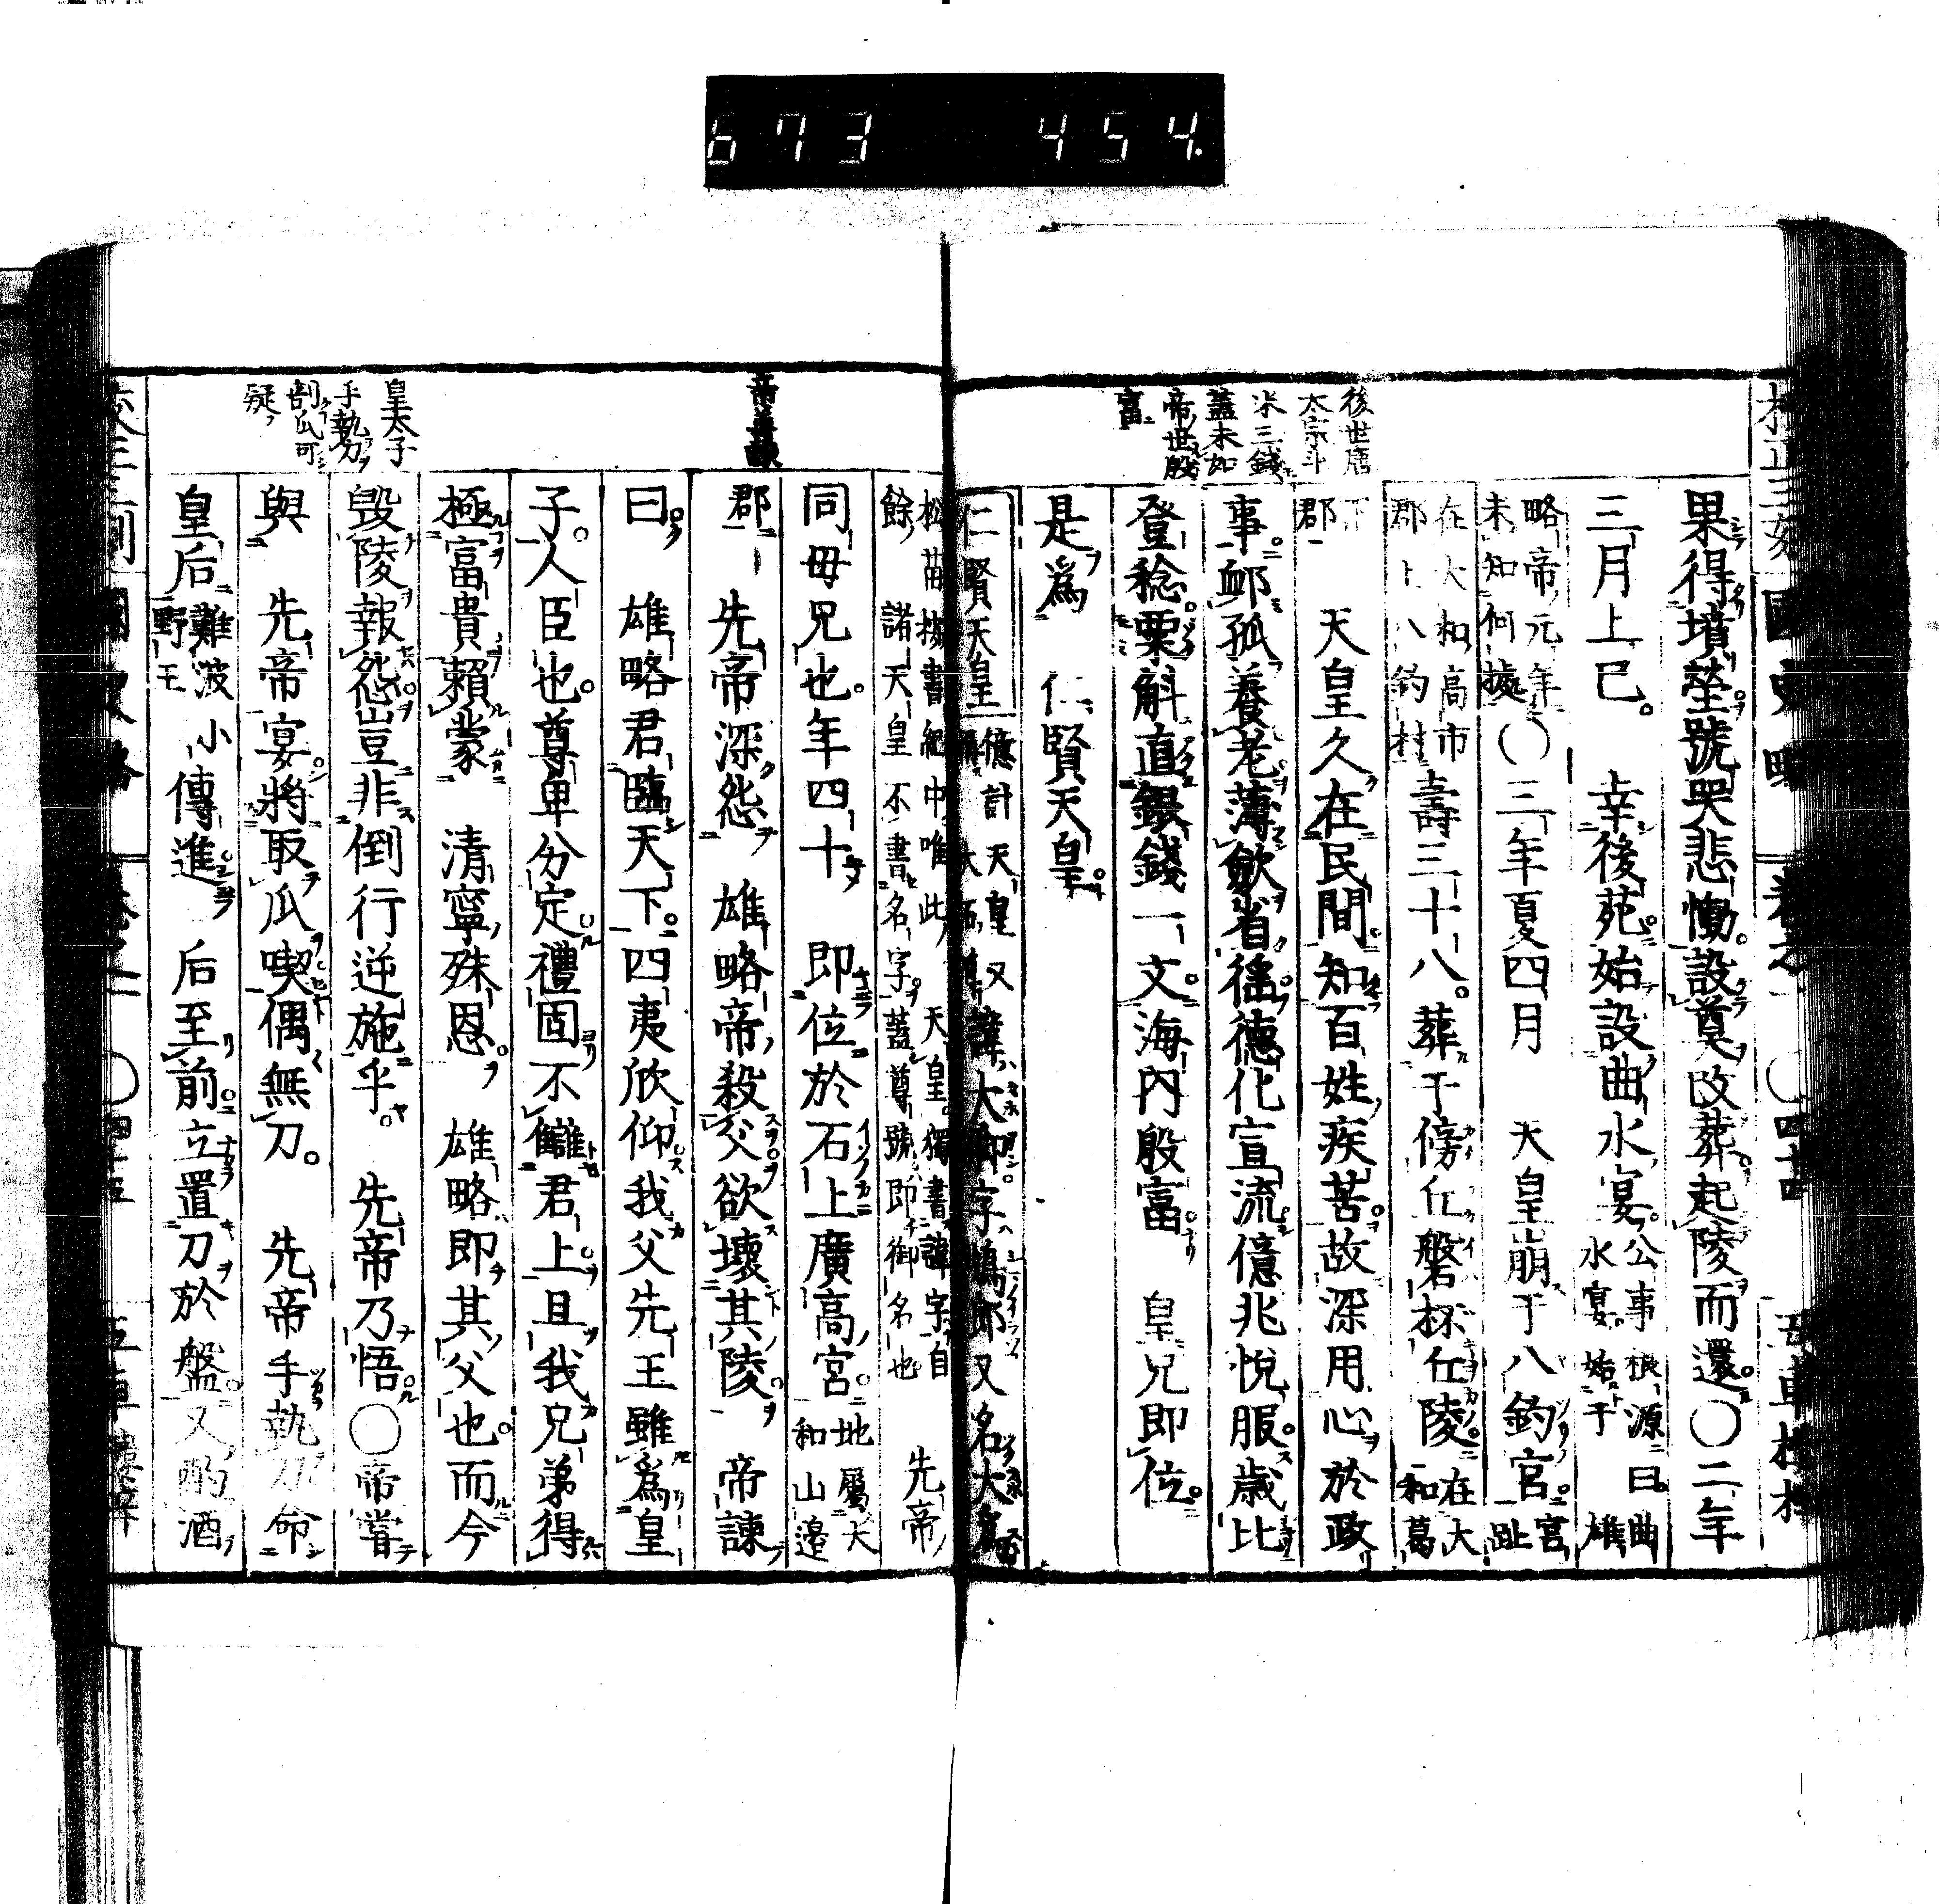 673 454
果得墳塋號哭悲慟設奠改葬起陵而還○二年
三月上巳幸後苑始設曲水宴公事根源曰曲
水宴始于雄
略帝元年
未知何據○三年夏四月天皇崩于八釣宮宮
趾
在大和高市
郡上八釣村壽三十八葬于傍丘磐杯丘陵在大
和葛
下
郡天皇久在民間知百姓疾苦故深用心於政
事邮孤養老薄斂省徭德化宣流億兆悅服歲比
登稔粟斛直銀錢一文海內殷富皇兄即位
是為仁賢天皇
後世唐
太宗斗
米三錢
蓋未如
帝世殷
富
仁賢天皇億計天皇又諱大脚字嶋郎又名大為
松苗據書紀中唯此天皇獨書諱字自
餘諸天皇不書名字蓋尊號即御名也先帝
同母兄也年四十即位於石上廣高宮地屬大
和山邊
郡先帝深怨雄略帝殺父欲壞其陵帝諫
曰雄略君臨天下四夷欣仰我父先王雖為皇
子人臣也尊卑分定禮固不讎君上且我兄弟得
極富貴賴蒙清寧殊恩雄略即其父也而今
毀陵報怨豈非倒行逆施乎先帝乃悟○帝嘗
與先帝宴將取瓜喫偶無刀先帝手執刀命
皇后難波小
野王傳進后至前立置刀於盤又酌酒
帝善諫
皇太子
手執刀
剖瓜可
疑